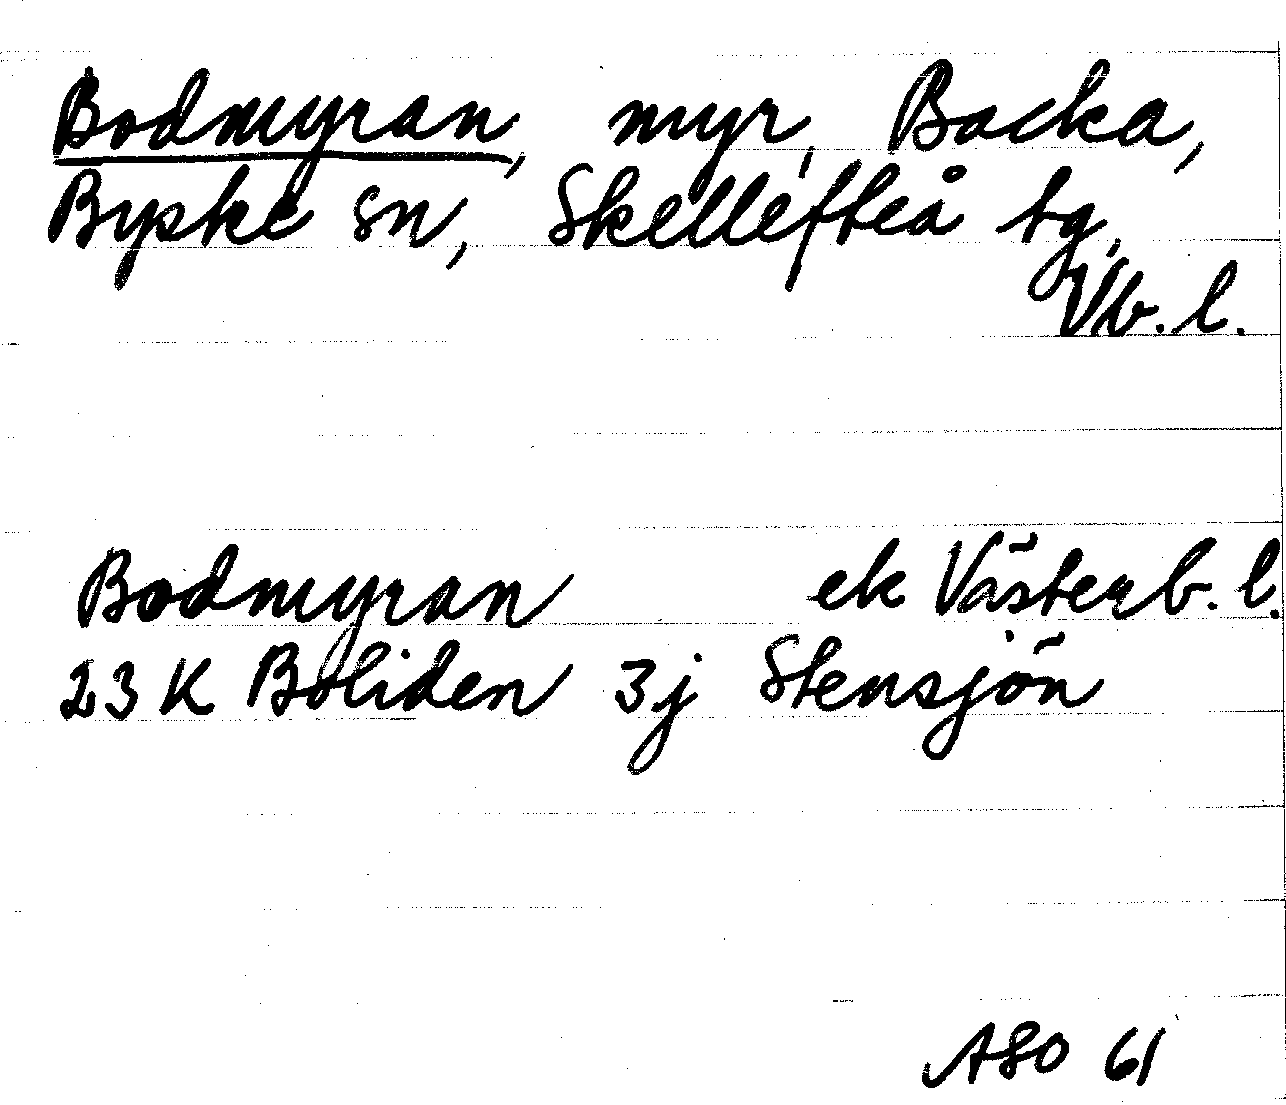 Bodmyran, myr, Backa,
Byske sn, Skellefteå tg,
Vb. l.
Bodmyran ek Västerb. l.
23 K Boliden 3j Stensjön
ASO 61